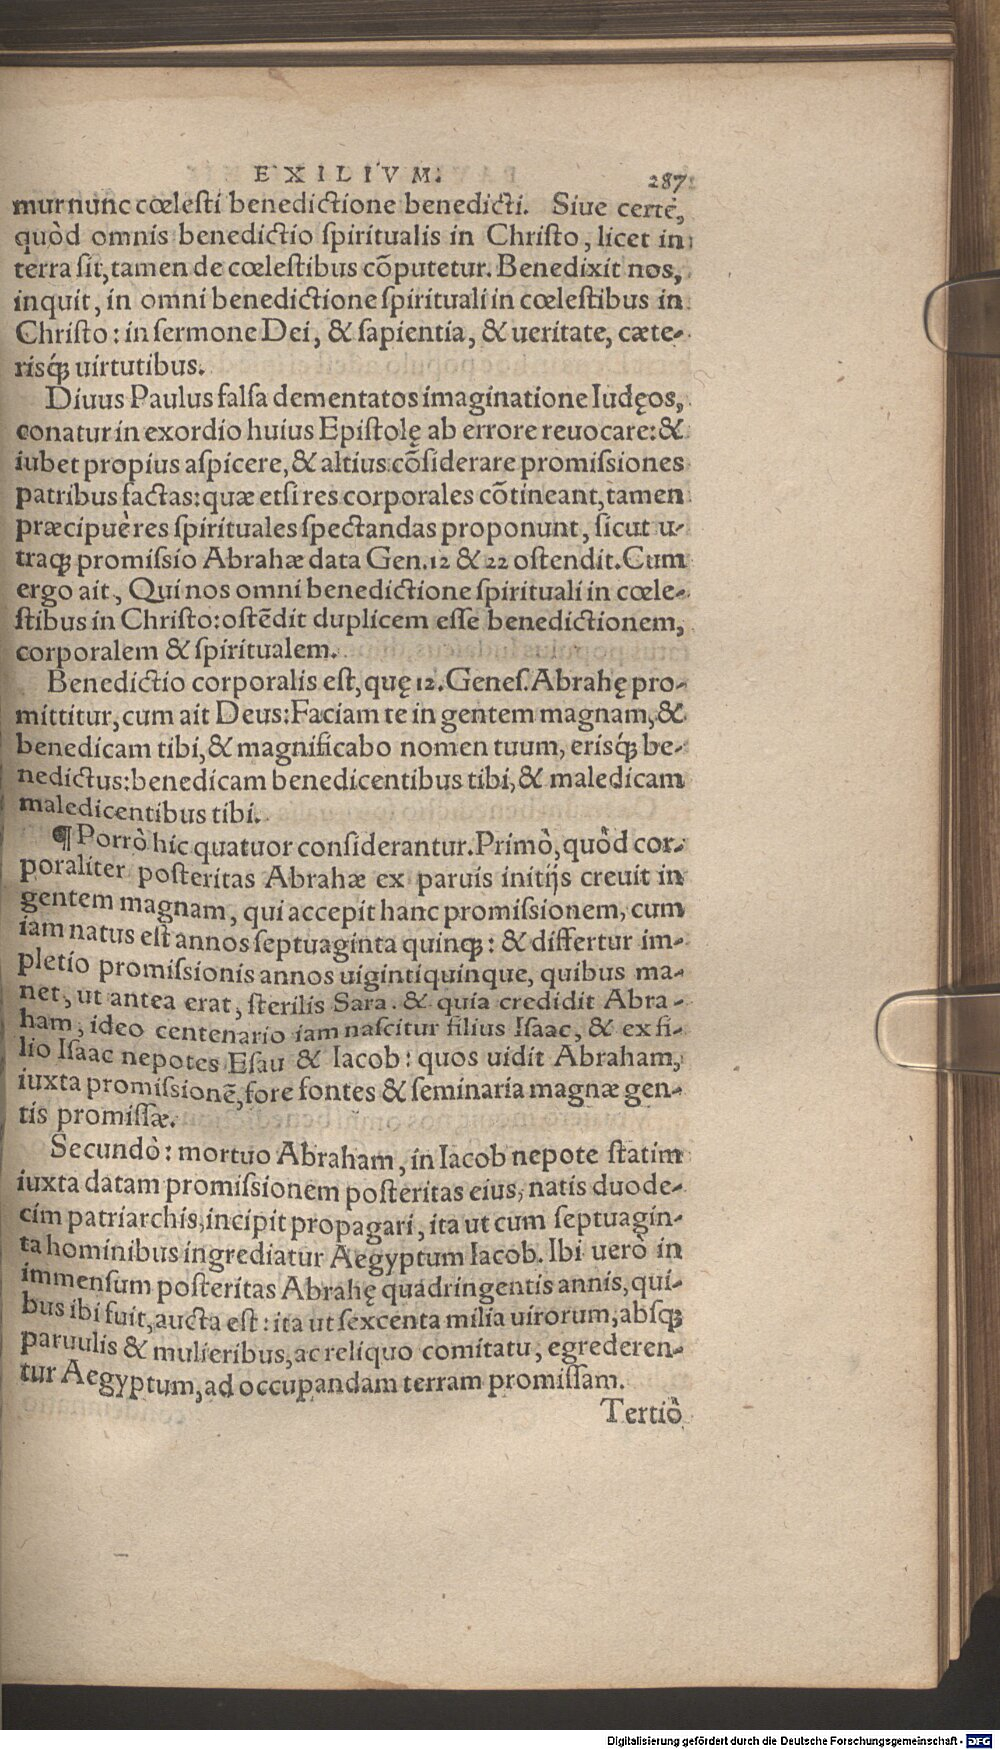 EXILIVM. 287
mur nunc cœlesti benedictione benedicti. Siue certè,
quòd omnis benedictio spiritualis in Christo, licet in
terra sit, tamen de cœlestibus cōputetur. Benedixit nos,
inquit, in omni benedictione spirituali in cœlestibus in
Christo: in sermone Dei, & sapientia, & ueritate, cæte-
risq́; uirtutibus.
Diuus Paulus falsa dementatos imaginatione Iudęos,
conatur in exordio huius Epistolę ab errore reuocare: &
iubet propius aspicere, & altius cōsiderare promissiones
patribus factas: quæ etsi res corporales cōtineant, tamen
præcipuè res spirituales spectandas proponunt, sicut u-
traq; promissio Abrahæ data Gen. 12 & 22 ostendit. Cum
ergo ait, Qui nos omni benedictione spirituali in cœle-
stibus in Christo: ostēdit duplicem esse benedictionem,
corporalem & spiritualem.
Benedictio corporalis est, quę 12. Genes. Abrahę pro-
mittitur, cum ait Deus: Faciam te in gentem magnam, &
benedicam tibi, & magnificabo nomen tuum, erisq́; be-
nedictus: benedicam benedicentibus tibi, & maledicam
maledicentibus tibi.
¶ Porrò hic quatuor considerantur. Primò, quòd cor-
poraliter posteritas Abrahæ ex paruis initijs creuit in
gentem magnam, qui accepit hanc promissionem, cum
iam natus est annos septuaginta quinq;: & differtur im-
pletio promissionis annos uigintiquinque, quibus ma-
net, ut antea erat, sterilis Sara. & quia credidit Abra-
ham, ideo centenario iam nascitur filius Isaac, & ex fi-
lio Isaac nepotes Esau & Iacob: quos uidit Abraham,
iuxta promissionē, fore fontes & seminaria magnæ gen-
tis promissæ.
Secundò: mortuo Abraham, in Iacob nepote statim
iuxta datam promissionem posteritas eius, natis duode-
cim patriarchis, incipit propagari, ita ut cum septuagin-
ta hominibus ingrediatur Aegyptum Iacob. Ibi uerò in
immensum posteritas Abrahę quadringentis annis, qui-
bus ibi fuit, aucta est: ita ut sexcenta milia uirorum, absq́;
paruulis & mulieribus, ac reliquo comitatu, egrederen-
tur Aegyptum, ad occupandam terram promissam.
Tertiò
Digitalisierung gefördert durch die Deutsche Forschungsgemeinschaft - DFG